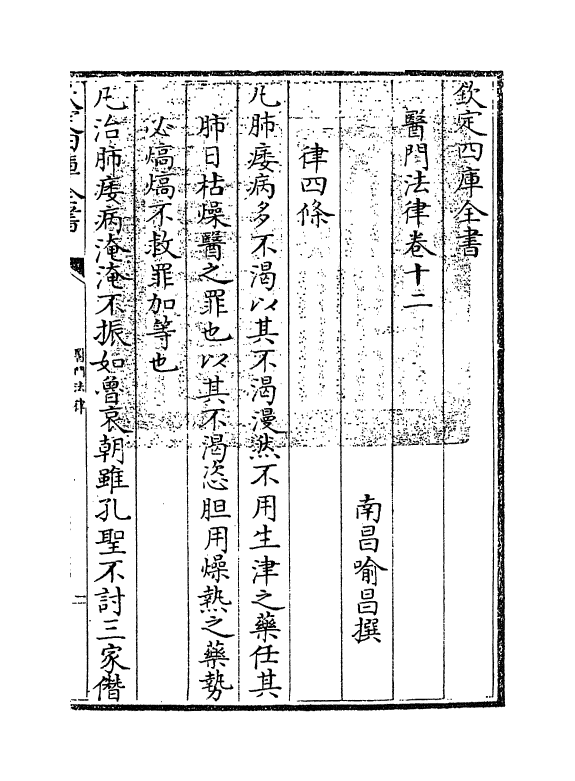 欽定四庫全書
醫門法律卷十二
南昌喻昌撰
律四條
凡肺痿病多不渴以其不渴漫然不用生津之藥任其
肺日枯燥醫之罪也以其不渴恣胆用燥熱之藥勢
必熇熇不救罪加等也
凡治肺痿病淹淹不振如魯哀朝雖孔聖不討三家僭
醫門法律
二